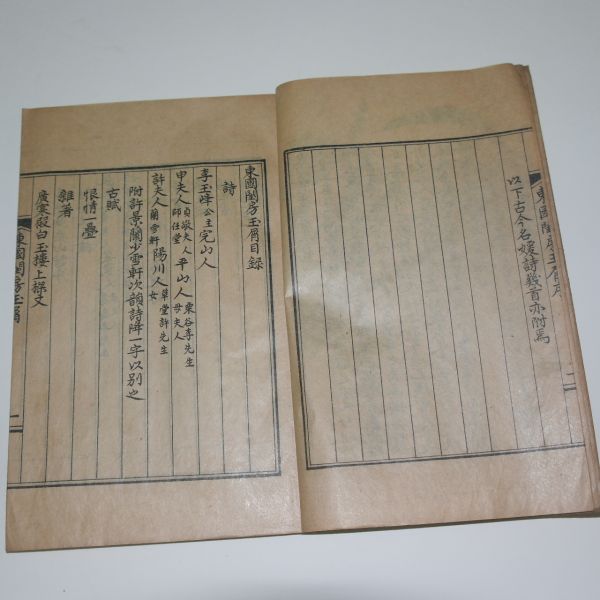 以下古今名媛詩幾首亦附焉
東國閨房玉屑序
二
東國閨房玉屑目錄
詩
李玉峰 公主 完山人
申夫人 貞敬夫人 師任堂 平山人 栗谷李先生 母夫人
許夫人 蘭雪軒 陽川人 草堂許先生 女
附許景蘭少雪軒次韻詩降一字以別之
古賦
恨情一疊
雜著
廣寒殿白玉樓上樑文
東國閨房玉屑
一